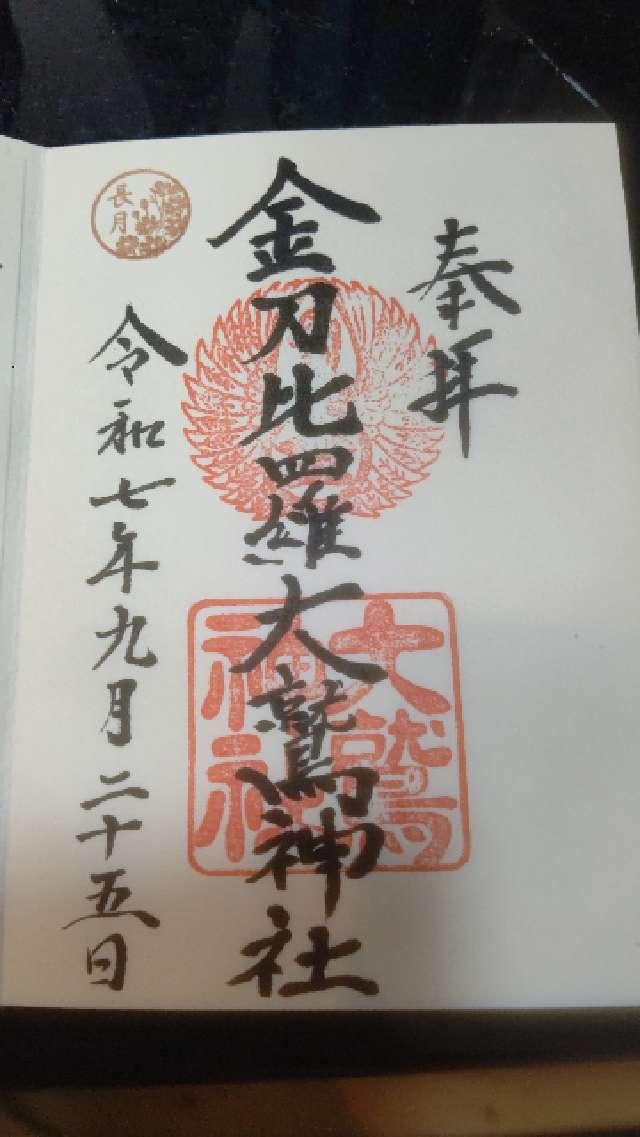 奉拝
金刀比羅大鷲神社
大鷲
神社
長月
令和七年九月二十五日